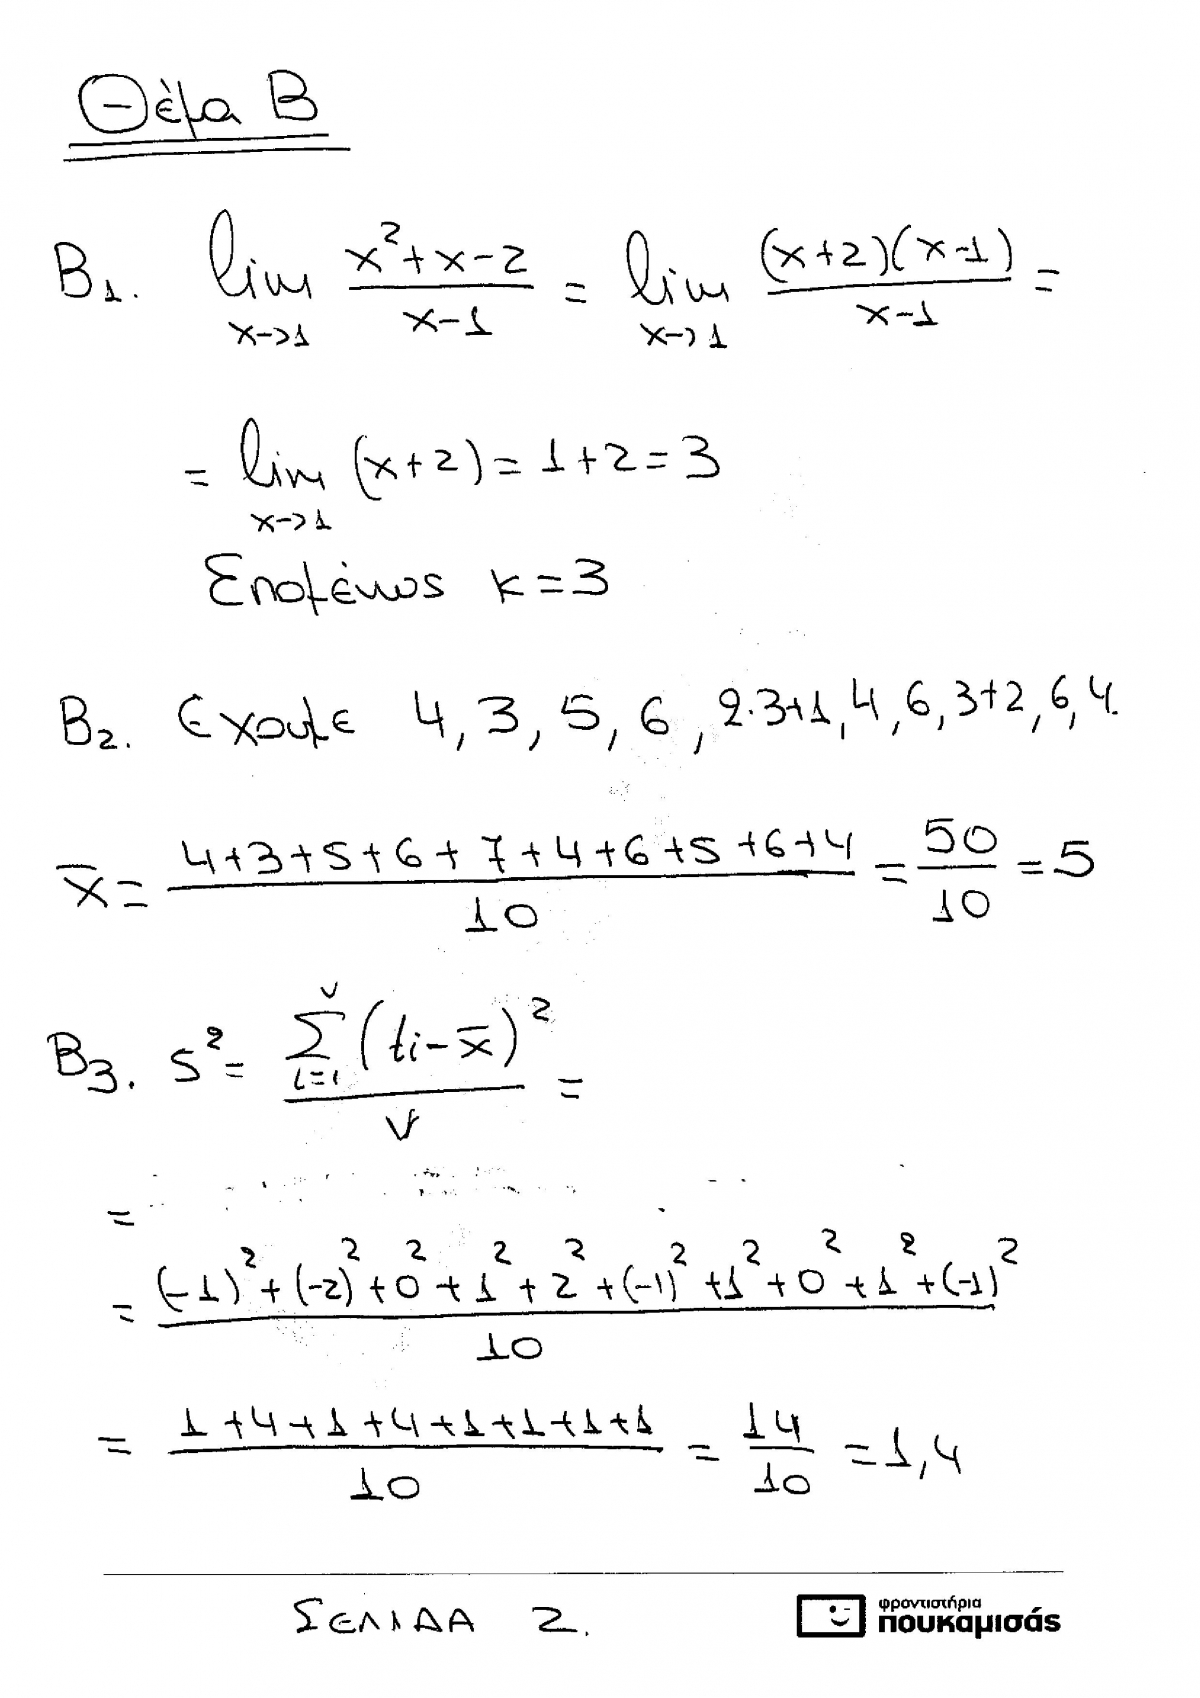 Θέμα Β
Β1. lim x→1 (x²+x-2)/(x-1) = lim x→1 ((x+2)(x-1))/(x-1) =
= lim x→1 (x+2) = 1+2 = 3
Επομένως κ=3
Β2. Έχουμε 4, 3, 5, 6, 2·3+1, 4, 6, 3+2, 6, 4.
x̄ = (4+3+5+6+7+4+6+5+6+4)/10 = 50/10 = 5
Β3. s² = (Σ i=1 ν (ti-x̄)²)/ν =
=
= ((-1)²+(-2)²+0²+1²+2²+(-1)²+1²+0²+1²+(-1)²)/10
= (1+4+1+4+1+1+1+1)/10 = 14/10 = 1,4
ΣΕΛΙΔΑ 2.
φροντιστήρια
πουκαμισάς